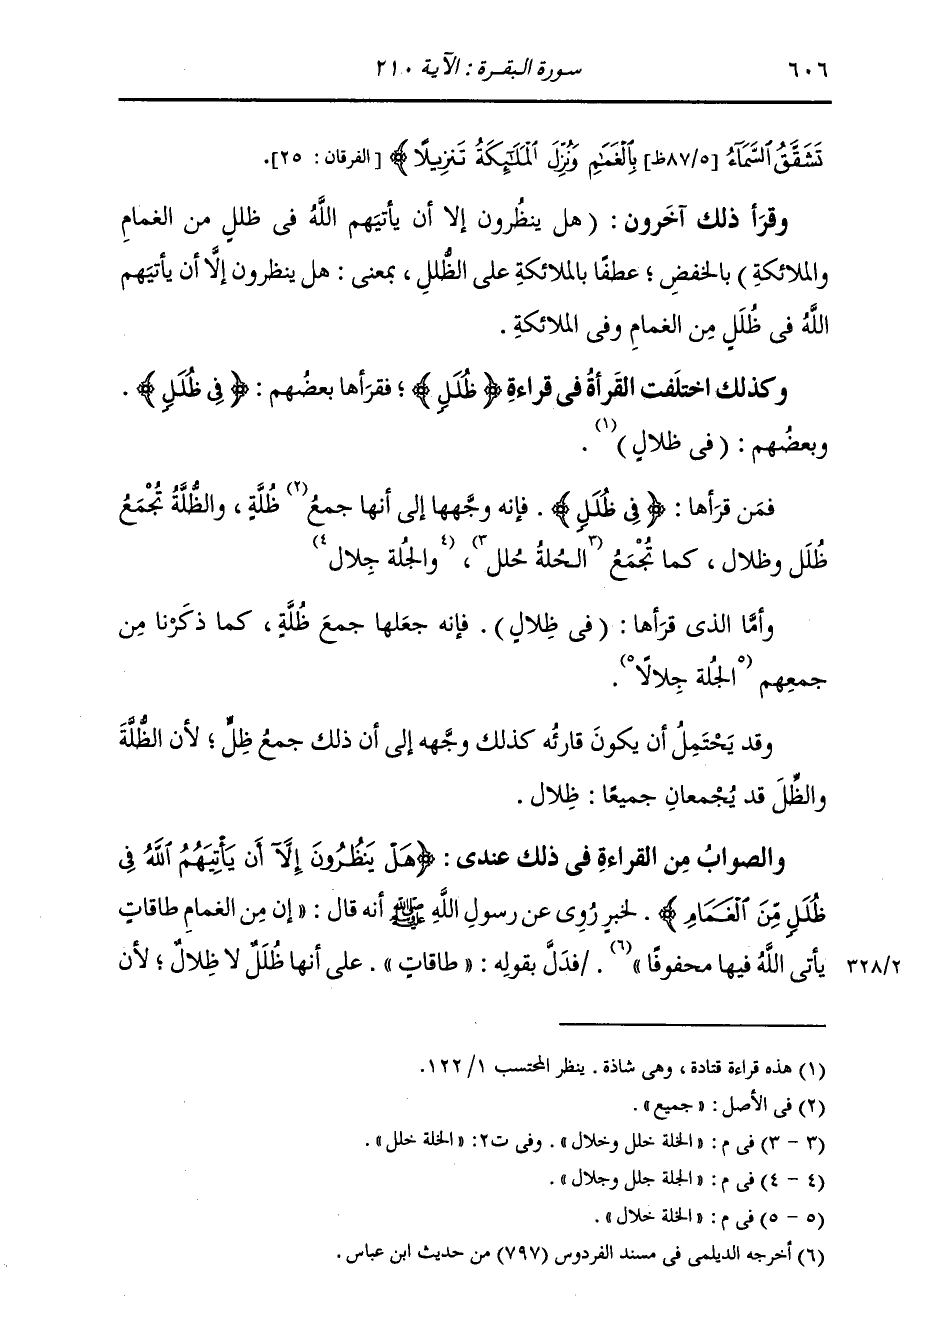 ٦٠٦ سورة البقرة : الآية ٢١٠
تَشَقَّقُ ٱلسَّمَآءُ [٨٧/٥ظ] بِٱلْغَمَٰمِ وَنُزِّلَ ٱلْمَلَٰٓئِكَةُ تَنزِيلًا ﴾ [الفرقان : ٢٥].
وقرَأ ذلك آخَرون : ( هل ينظُرون إلا أن يأتيَهم اللَّهُ فى ظللٍ من الغمامِ
والملائكةِ ) بالخفضِ ؛ عطفًا بالملائكةِ على الظُّللِ ، بمعنى : هل ينظرون إلَّا أن يأتيَهم
اللَّهُ فى ظُلَلٍ مِن الغمامِ وفى الملائكةِ .
وكذلك اختلَفت القَرأةُ فى قراءةِ ﴿ ظُلَلٍ ﴾ ؛ فقرَأها بعضُهم : ﴿ فِى ظُلَلٍ ﴾ .
وبعضُهم : ( فى ظلالٍ )(١) .
فمَن قرَأها : ﴿ فِى ظُلَلٍ ﴾ . فإنه وجَّهها إلى أنها جمعُ(٢) ظُلَّةٍ ، والظُّلَّةُ تُجْمَعُ
ظُلَل وظلال ، كما تُجْمَعُ (٣الحُلةُ حُلل٣) ، (٤والجُلة جِلال٤)
وأمَّا الذى قرَأها : ( فى ظِلالٍ ) . فإنه جعَلها جمعَ ظُلَّةٍ ، كما ذكَرْنا مِن
جمعِهم (٥الجُلة جِلالًا٥) .
وقد يَحْتَمِلُ أن يكونَ قارئُه كذلك وجَّهه إلى أن ذلك جمعُ ظِلٍّ ؛ لأن الظُّلَّةَ
والظِّلَ قد يُجْمعانِ جميعًا : ظِلال .
والصوابُ مِن القراءةِ فى ذلك عندى : ﴿ هَلْ يَنظُرُونَ إِلَّآ أَن يَأْتِيَهُمُ ٱللَّهُ فِى
ظُلَلٍ مِّنَ ٱلْغَمَامِ ﴾ . لخبرٍ رُوِى عن رسولِ اللَّهِ ﷺ أنه قال : « إن مِن الغمامِ طاقاتٍ
يأتى اللَّهُ فيها محفوفًا »(٦) . /فدَلَّ بقولِه : « طاقاتٍ » . على أنها ظُلَلٌ لا ظِلالٌ ؛ لأن ٣٢٨/٢
(١) هذه قراءة قتادة ، وهى شاذة . ينظر المحتسب ١/ ١٢٢.
(٢) فى الأصل : « جميع » .
(٣ - ٣) فى م : « الخلة خلل وخلال » . وفى ت٢: « الخلة خلل » .
(٤ - ٤) فى م : « الجلة جلل وجلال » .
(٥ - ٥) فى م : « الخلة خلال » .
(٦) أخرجه الديلمى فى مسند الفردوس (٧٩٧) من حديث ابن عباس .